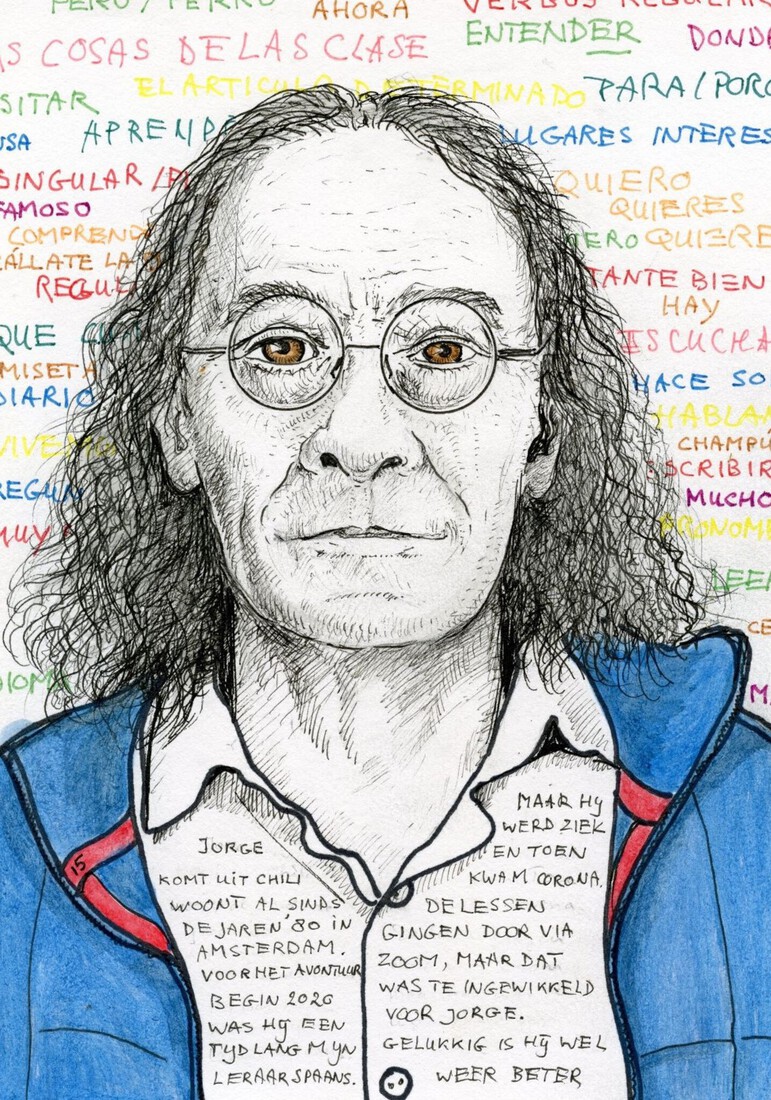 PERO / PERRO
AHORA
VERBOS REGULAR
AS COSAS DE LAS CLASE
ENTENDER
DONDE
SITAR
EL ARTICULO DETERMINADO
PARA / PORQ
USA
APREND
LUGARES INTERES
SINGULAR / PL
QUIERO
FAMOSO
QUIERES
COMPREND
TERO QUIERE
CÁLLATE LA
REGUL
TANTE BIEN
HAY
QUE
ESCUCHA
MISETA
HACE SO
DIARIO
HABLAN
VIVEMO
CHAMPÚ
ESCRIBIR
REGUN
MUCHO
MUY
PRONOME
LEER
CE
IDIOMA
M
15
JORGE
KOMT UIT CHILI
WOONT AL SINDS
DE JAREN '80 IN
AMSTERDAM.
VOOR HET AVONTUUR
BEGIN 2020
WAS HIJ EEN
TIJD LANG MIJN
LERAAR SPAANS.
MAAR HIJ
WERD ZIEK
EN TOEN
KWAM CORONA.
DE LESSEN
GINGEN DOOR VIA
ZOOM, MAAR DAT
WAS TE INGEWIKKELD
VOOR JORGE.
GELUKKIG IS HIJ WEL
WEER BETER